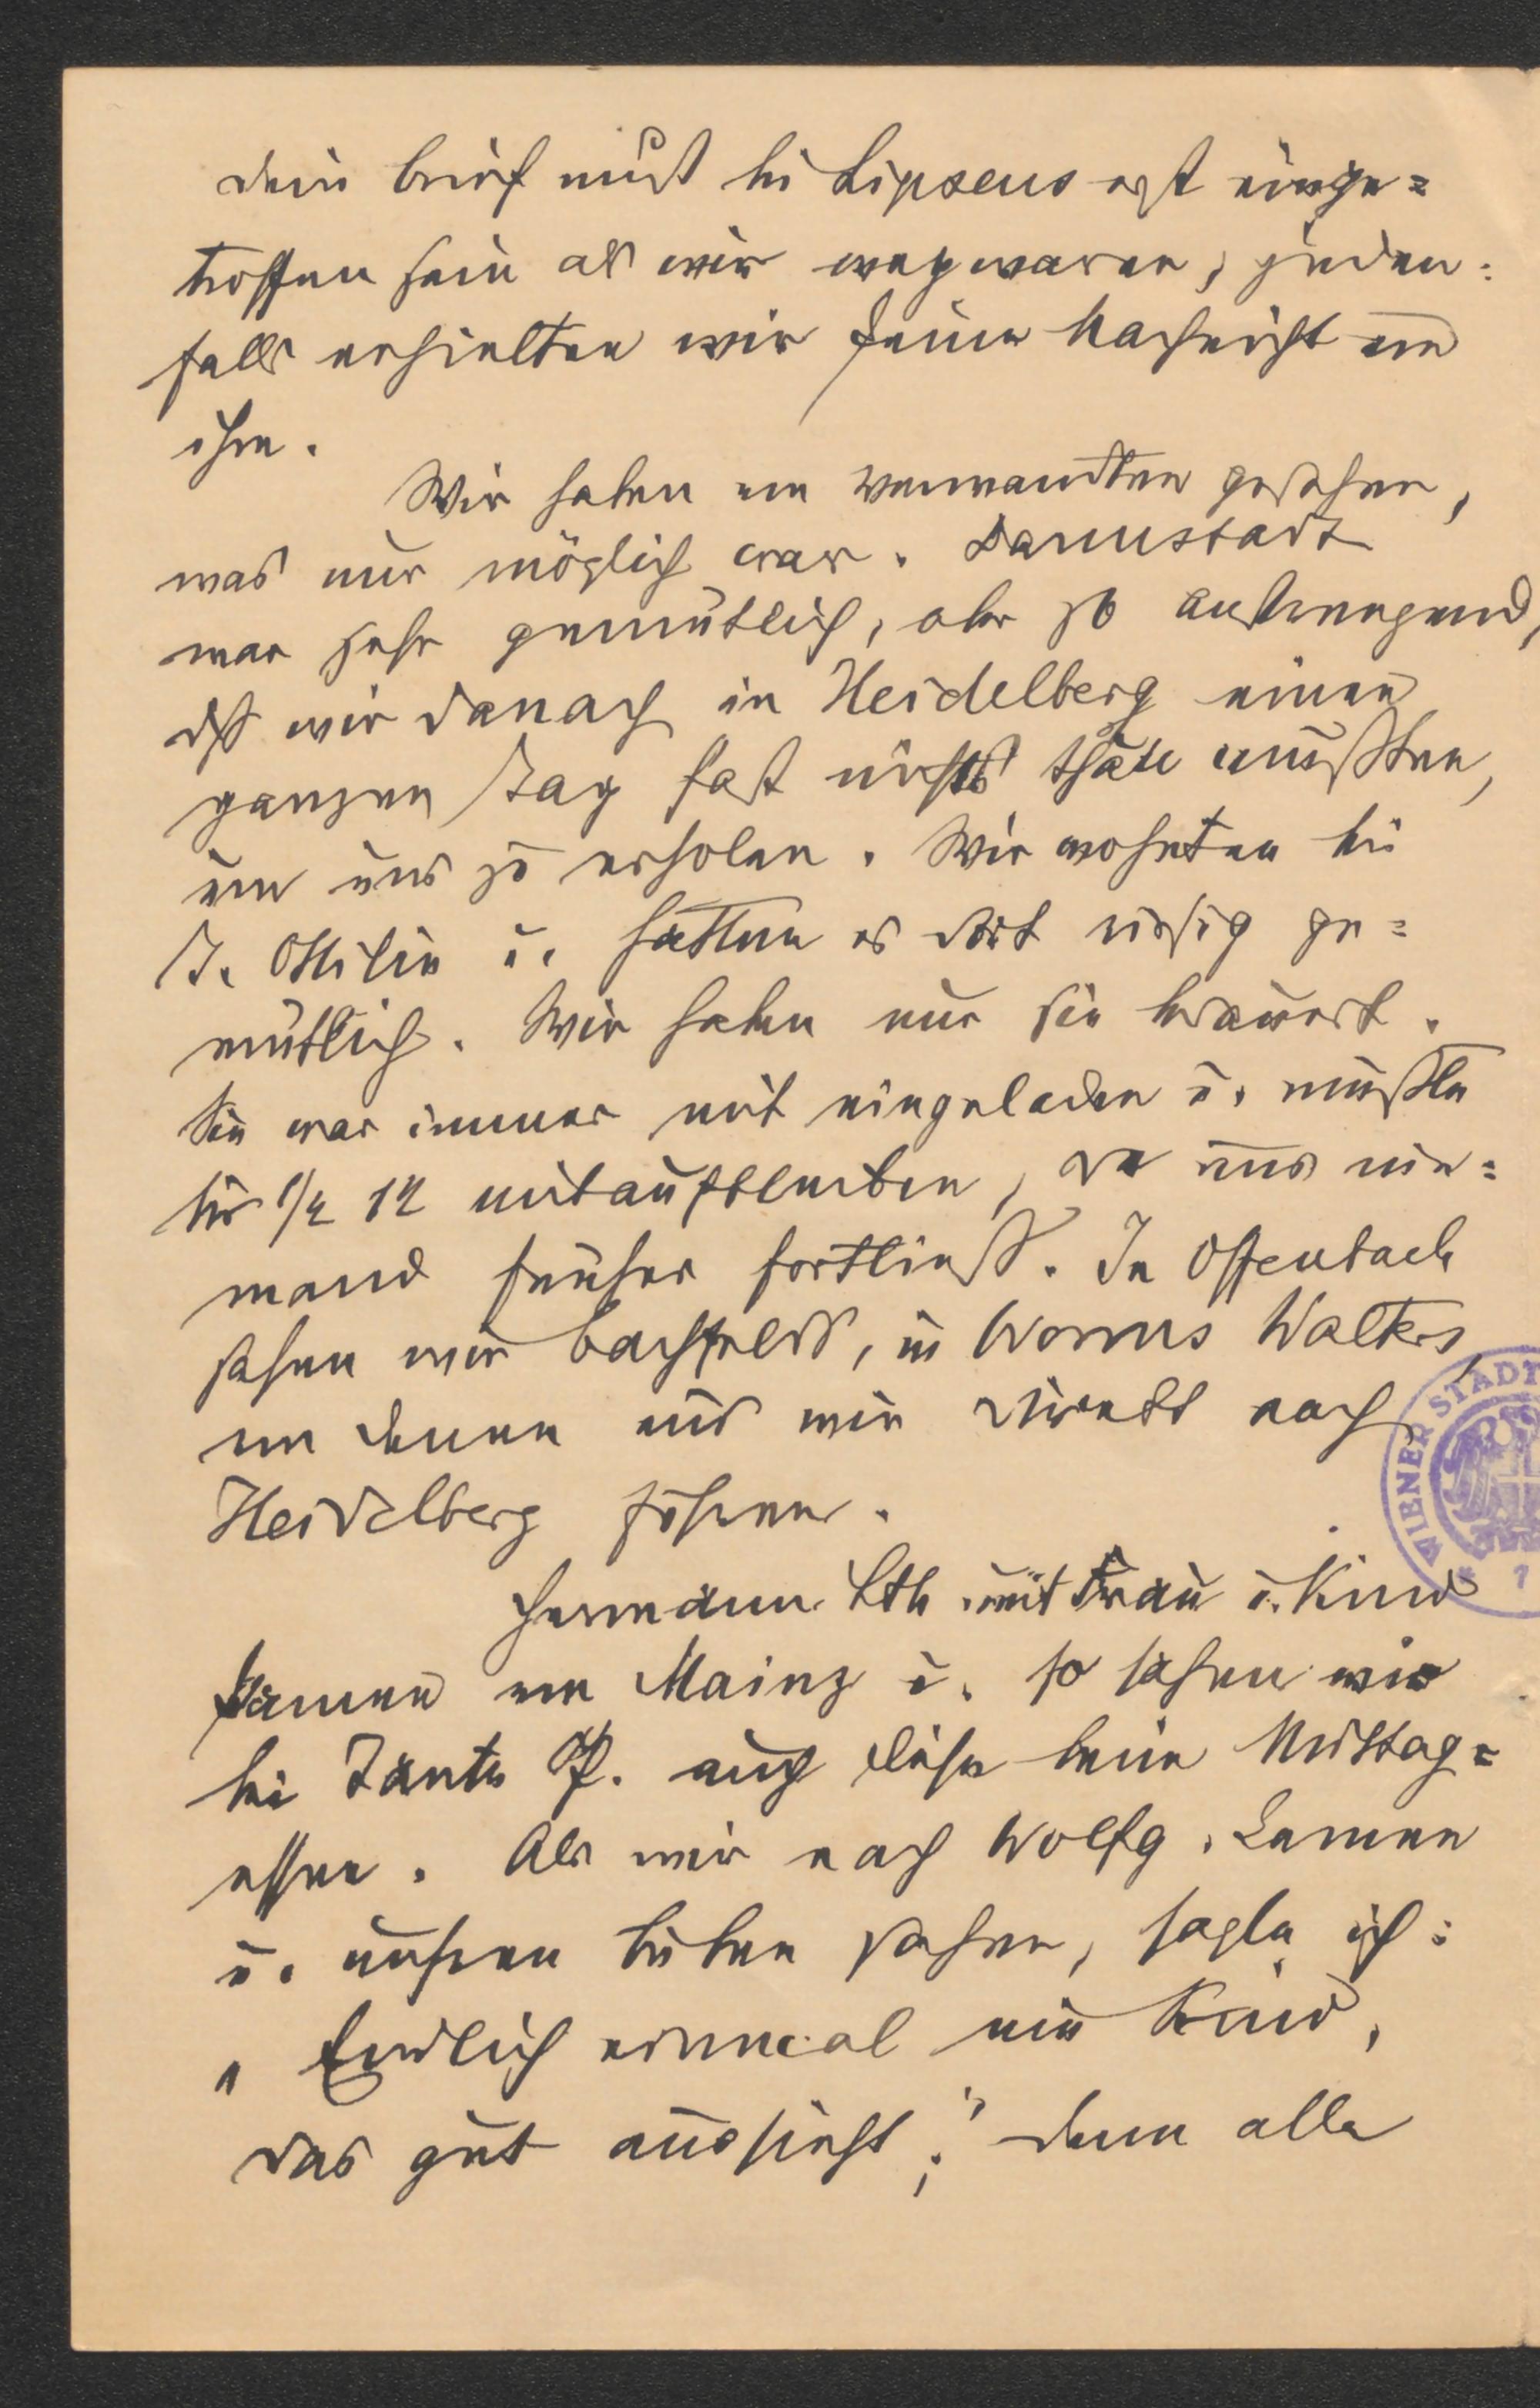 dein Brief muß bei Lipsens erst einge=
troffen sein als wir weg waren, jeden=
falls erhielten wir keine Nachricht von
ihm.
Wir haben an Verwandten gesehen,
was nur möglich war. Darmstadt
war sehr gemütlich, aber so anstrengend,
daß wir danach in Heidelberg einen
ganzen Tag fast nichts thun mußten,
um uns zu erholen. Wir wohnten bei
T. Ottilie u. hatten es dort riesig ge=
mütlich. Wir haben nur sie bedauert.
Sie war immer mit eingeladen u. mußte
bis 1/2 12 mitaufbleiben, da uns nie=
mand früher fortließ. In Offenbach
sahen wir Bachfelds, in Worms Walters,
von denen aus wir direkt nach
Heidelberg fuhren.
Hermann mit Frau u. Kind
kamen von Mainz u. so sahen wir
bei Tante P. auch diese beim Mittag=
essen. Als wir nach Wolfg. kamen
u. unseren Buben sahen, sagte ich:
„Endlich einmal ein Kind,
das gut aussieht;" denn alle
WIENER STADT